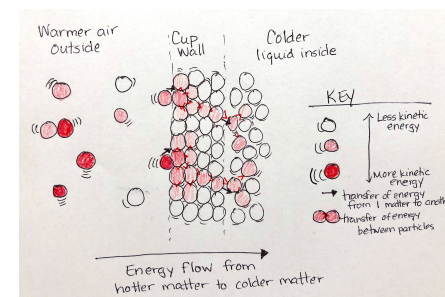 Warmer air
outside
Cup
Wall
Colder
liquid inside
KEY
Less kinetic
energy
More kinetic
energy
transfer of energy
from 1 matter to anoth
transfer of energy
between particles
Energy flow from
hotter matter to colder matter